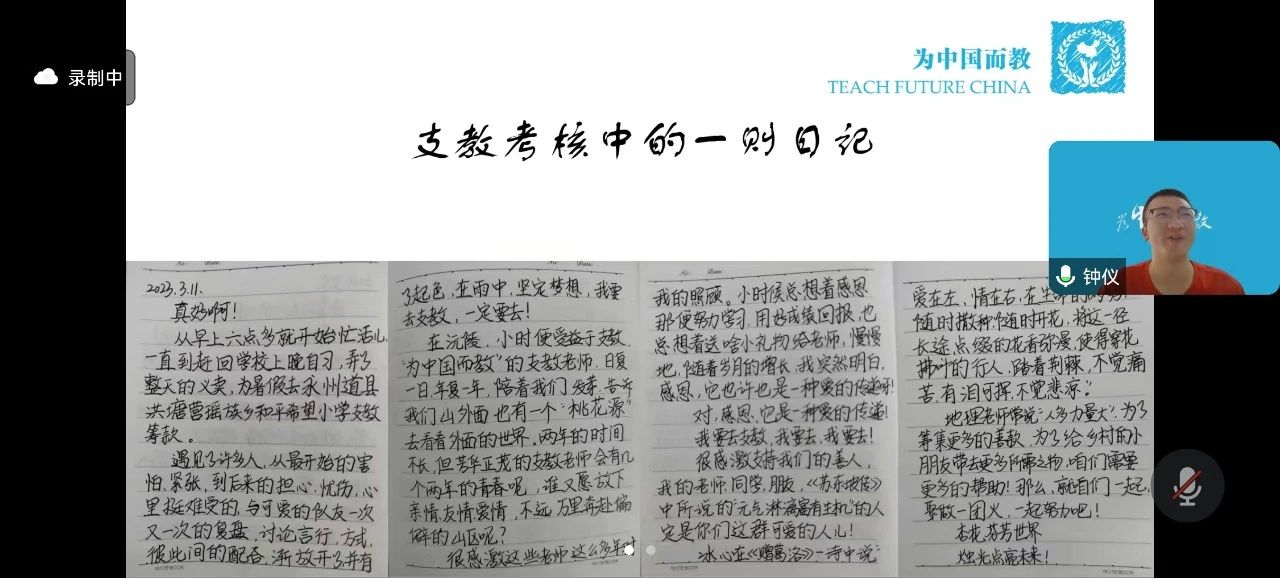 录制中
为中国而教
TEACH FUTURE CHINA
支教考核中的一则日记
钟仪
2023.3.11.
真好啊!
从早上六点多就开始忙活儿,
一直到赶回学校上晚自习,弄了
整天的义卖,为暑假去永州道县
洪塘营瑶族乡和平希望小学支教
筹款。
遇见了许多人,从最开始的害
怕、紧张,到后来的担心、忧伤,心
里挺难受的,与可爱的队友一次
又一次的复盘,讨论言行、方式,
彼此间的配合,渐放开了并有
了起色,在雨中,坚定梦想,我要
去支教,一定要去!
在沅陵,小时便受益于支教
“为中国而教”的支教老师,日复
一日,年复一年,陪着我们
我们山外面也有一个“桃花源”
去看看外面的世界。两年的时间
不长,但芳华正茂的支教老师会有几
个两年的青春呢,谁又愿放下
亲情友情爱情,不远万里奔赴偏
僻的山区呢?
很感激这些老师这么多年对
我的照顾。小时候总想着感恩
那便努力学习,用好成绩回报,也
总想着送啥小礼物给老师,慢慢
地,随着岁月的增长,我突然明白,
感恩,它也许也是一种爱的传递呀!
对,感恩,它是一种爱的传递!
我要去支教,我要去,我要去!
很感激支持我们的善人,
我的老师,同学,朋友,《苏东坡传》
中所说的“元气淋漓富有生机”的人
定是你们这群可爱的人儿!
冰心在《赠葛洛》一诗中说“
爱在左,情在右,在生命的
随时撒种,随时开花,将这一径
长途点缀的花香弥漫,使得穿花
拂叶的行人,踏着荆棘,不觉痛
苦,有泪可挥,不觉悲凉。”
地理老师常说“人多力量大”,为了
筹集更多的善款,为了给乡村的小
朋友带去更多所需之物,咱们需要
更多的帮助!那么,就咱们一起,
聚做一团火,一起努力吧!
杏花芬芳世界
烛光点亮未来!
NOTEBOOK
NOTEBOOK
NOTEBOOK
NOTEBOOK